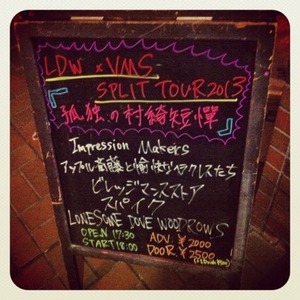 LDW × VMS
SPLIT TOUR 2013
『孤独の村綺短憚』
Impression Makers
アップル斎藤と愉快なヤクレスたち
ビレッジマンズストア
スパイク
LONESOME DOVE WOODROWS
OPEN 17:30 ADV. ¥2000
START 18:00 DOOR. ¥2500